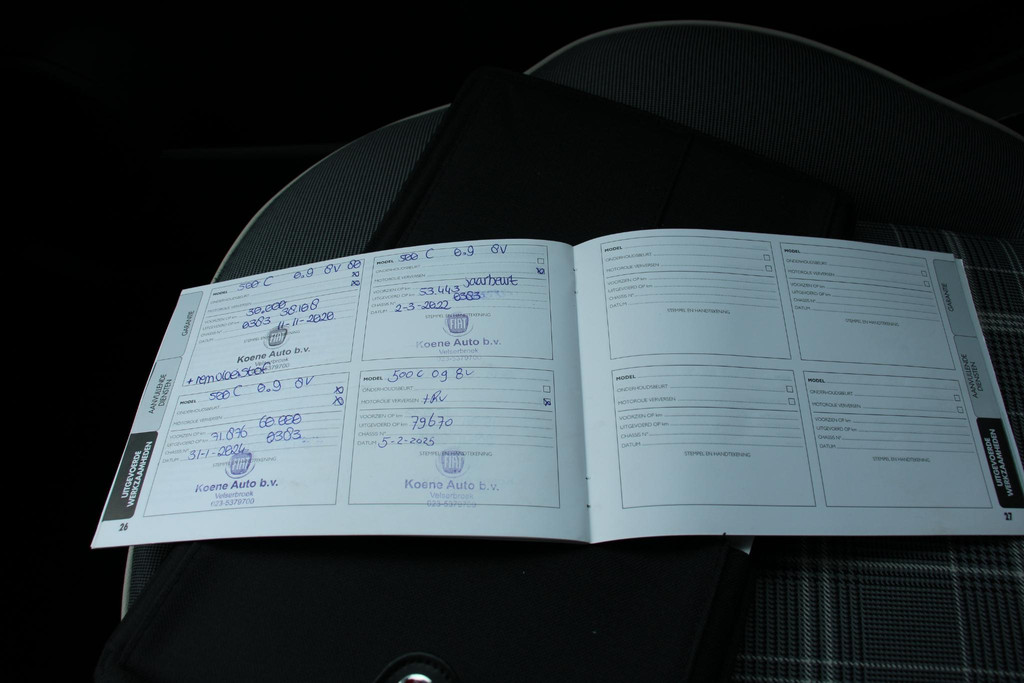 GARANTIE
AANVULLENDE
DIENSTEN
UITGEVOERDE
WERKZAAMHEDEN
26
500 C 0.9 8V 80
ONDERHOUDSBEURT
MOTOROLIE VERVERSEN
VOORZIEN OP km 30.000
UITGEVOERD OP km 38.168
CHASSIS N° 0383
DATUM 11-11-2020.
FIAT
Koene Auto b.v.
Velserbroek
+ remvloeistof
MODEL 500 C 0.9 8V
ONDERHOUDSBEURT
MOTOROLIE VERVERSEN
VOORZIEN OP km Jaarbeurt
UITGEVOERD OP km 53.443
CHASSIS N° 0383
DATUM 2-3-2022
STEMPEL EN HANDTEKENING
FIAT
Koene Auto b.v.
Velserbroek
MODEL 500 C 0.9 8V
ONDERHOUDSBEURT
MOTOROLIE VERVERSEN
VOORZIEN OP km 60.000
UITGEVOERD OP km 71.876
CHASSIS N° 0383
DATUM 31-1-2024
FIAT
Koene Auto b.v.
Velserbroek
023-5379700
MODEL 500 C 09 8V
ONDERHOUDSBEURT
MOTOROLIE VERVERSEN
VOORZIEN OP km
UITGEVOERD OP km 79670
CHASSIS N°
DATUM 5-2-2025
STEMPEL EN HANDTEKENING
FIAT
Koene Auto b.v.
Velserbroek
023-5379700
MODEL
ONDERHOUDSBEURT
MOTOROLIE VERVERSEN
VOORZIEN OP km
UITGEVOERD OP km
CHASSIS N°
DATUM
STEMPEL EN HANDTEKENING
MODEL
ONDERHOUDSBEURT
MOTOROLIE VERVERSEN
VOORZIEN OP km
UITGEVOERD OP km
CHASSIS N°
DATUM
STEMPEL EN HANDTEKENING
MODEL
ONDERHOUDSBEURT
MOTOROLIE VERVERSEN
VOORZIEN OP km
UITGEVOERD OP km
CHASSIS N°
DATUM
STEMPEL EN HANDTEKENING
MODEL
ONDERHOUDSBEURT
MOTOROLIE VERVERSEN
VOORZIEN OP km
UITGEVOERD OP km
CHASSIS N°
DATUM
STEMPEL EN HANDTEKENING
GARANTIE
AANVULLENDE
DIENSTEN
UITGEVOERDE
WERKZAAMHEDEN
27